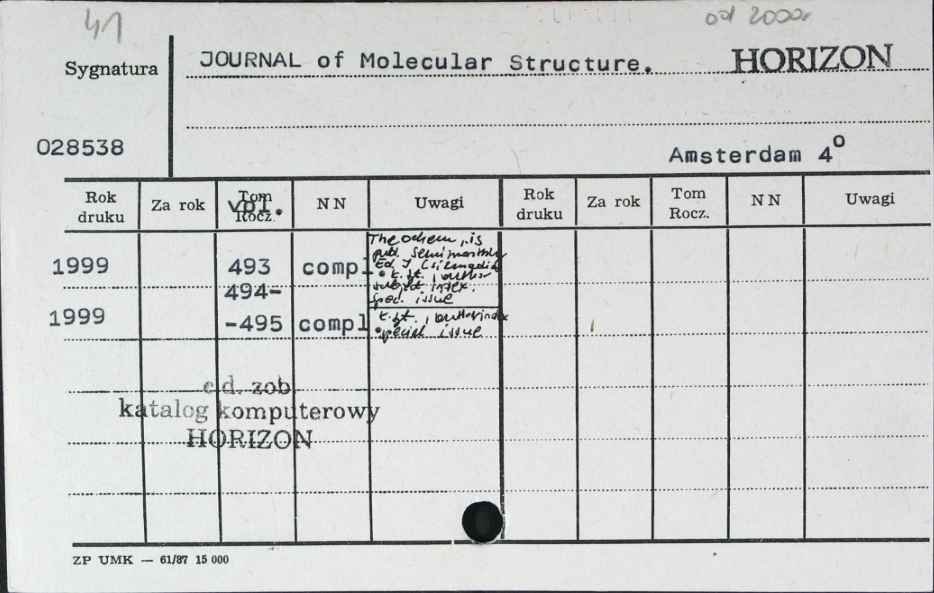 41
od 2000r
Sygnatura
JOURNAL of Molecular Structure.
HORIZON
028538
Amsterdam 4o
Rok druku Za rok Tom Rocz. vol. NN Uwagi Rok druku Za rok Tom Rocz. NN Uwagi
Theochem, is
publ. semimonthly
Ed.
1999 493 compl
k. tyt., author
subject index.
spec. issue
494-
1999 -495 compl
k. tyt., author index
special issue
c.d. zob.
katalog komputerowy
HORIZON
ZP UMK — 61/87 15 000